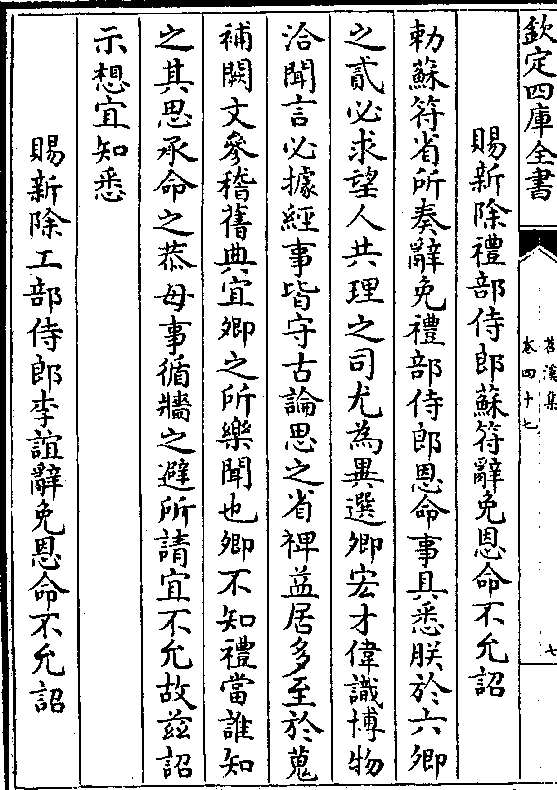 欽定四庫全書
苕溪集
卷四十七
七
賜新除禮部侍郎蘇符辭免恩命不允詔
勅蘇符省所奏辭免禮部侍郎恩命事具悉朕於六卿
之貳必求望人共理之司尤為異選卿宏才偉識博物
洽聞言必據經事皆守古論思之省裨益居多至於蒐
補闕文參稽舊典宜卿之所樂聞也卿不知禮當誰知
之其思承命之恭毋事循牆之避所請宜不允故兹詔
示想宜知悉
賜新除工部侍郎李誼辭免恩命不允詔